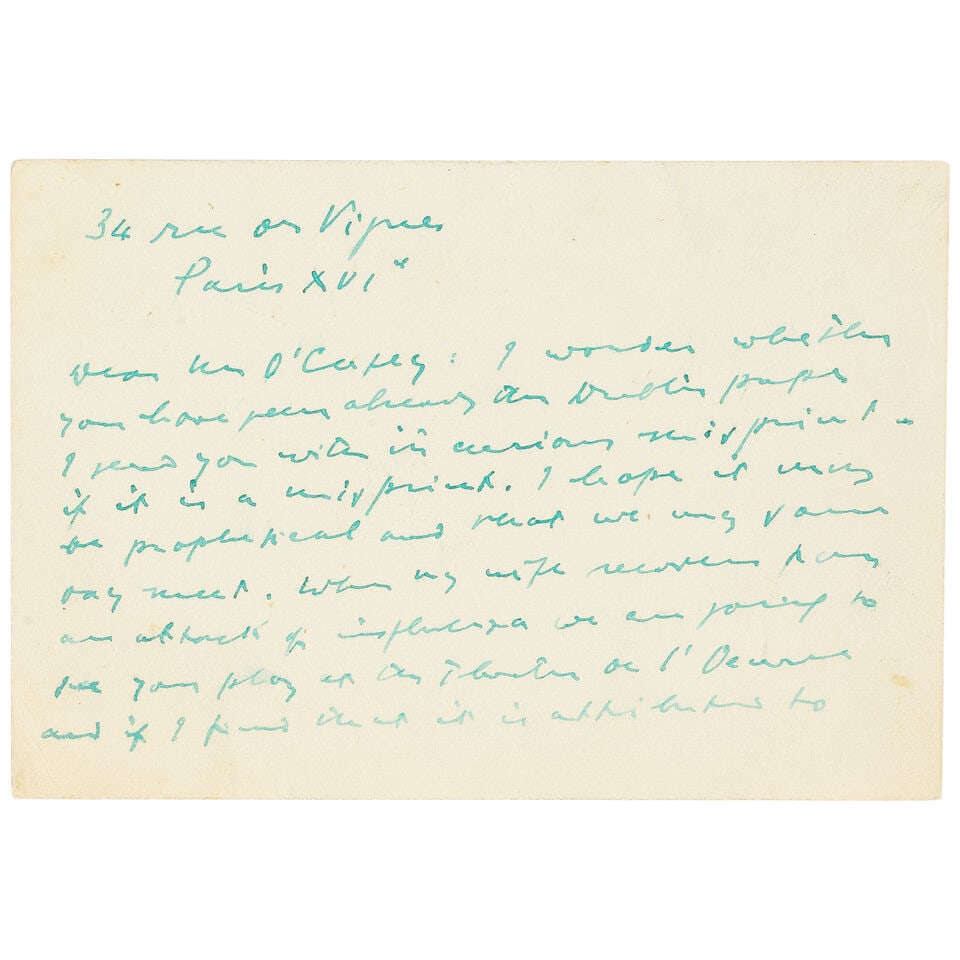 34 rue des Vignes
Paris XVIe
Dear Mr O'Casey: I wonder whether
you have seen already the Dublin paper
I send you with its curious misprint –
if it is a misprint. I hope it may
be prophetical and that we may some
day meet. When my wife recovers from
an attack of influenza we are going to
see your play at the Théatre de l'Oeuvre
and if I find that it is attributed to